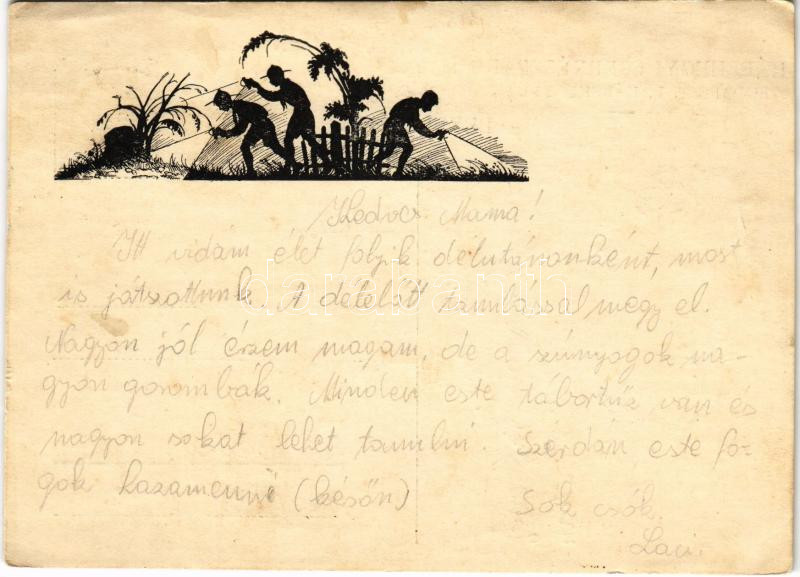 Kedves Mama!
Itt vidám élet folyik délutánonként, most
is játszottunk. A délelőtt tanulással megy el.
Nagyon jól érzem magam, de a szúnyogok na-
gyon gorombák. Minden este tábortűz van és
nagyon sokat lehet tanulni. Szerdán este fo-
gok hazamenni (későn)
Sok csók
Laci.
darabanth